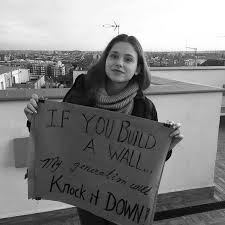 IF YOU BUILD
A WALL...
My generation will
KNOCK it DOWN!